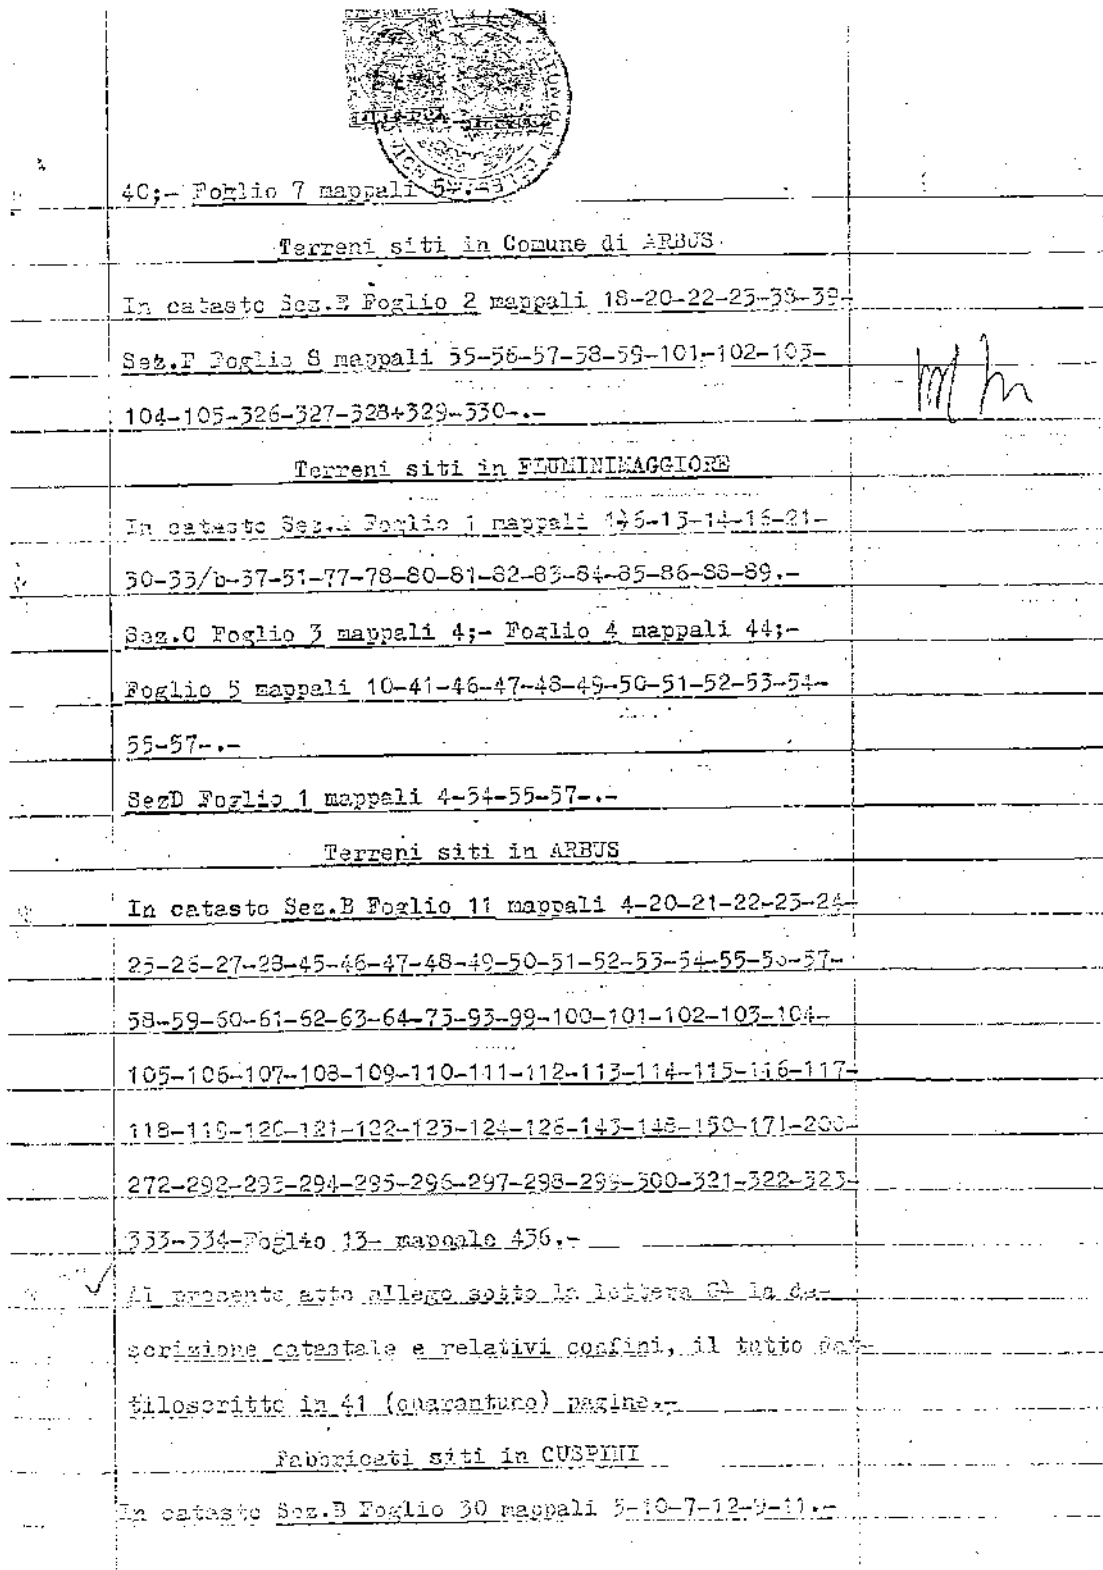 40;- Foglio 7 mappali
Terreni siti in Comune di ARBUS
In catasto Sez.E Foglio 2 mappali 18-20-22-23-38-39-
Sez.F Foglio 8 mappali 55-56-57-58-59-101-102-103-
104-105-326-327-328+329-330-.-
Terreni siti in FLUMINIMAGGIORE
In catasto Sez.A Foglio 1 mappali 13-14-16-21-
30-33/b-37-51-77-78-80-81-82-83-84-85-86-88-89.-
Sez.C Foglio 3 mappali 4;- Foglio 4 mappali 44;-
Foglio 5 mappali 10-41-46-47-48-49-50-51-52-53-54-
55-57-.-
SezD Foglio 1 mappali 4-54-55-57-.-
Terreni siti in ARBUS
In catasto Sez.B Foglio 11 mappali 4-20-21-22-23-24-
25-26-27-28-45-46-47-48-49-50-51-52-53-54-55-56-57-
58-59-60-61-62-63-64-73-93-99-100-101-102-103-104-
105-106-107-108-109-110-111-112-113-114-115-116-117-
118-119-120-121-122-123-124-126-143-148-150-171-200-
272-292-293-294-295-296-297-298-299-300-321-322-323-
333-334-Foglio 13- mappale 436.-
Al presente atto allego sotto la lettera G⟩ la de-
scrizione catastale e relativi confini, il tutto dat-
tiloscritto in 41 (quarantuno) pagine.-
Fabbricati siti in GUSPINI
In catasto Sez.B Foglio 30 mappali 5-10-7-12-9-11.-